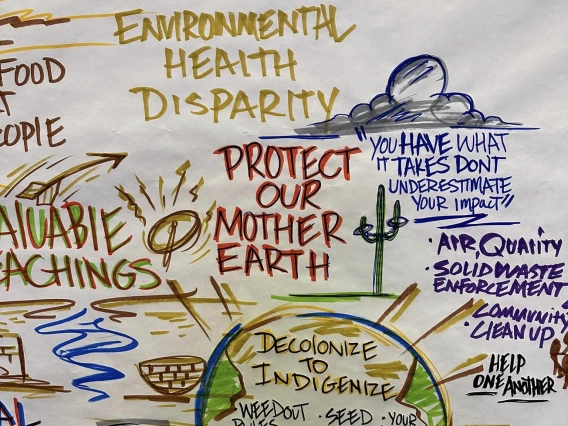 ENVIRONMENTAL
HEALTH
DISPARITY
FOOD
OPLE
"YOU HAVE WHAT
IT TAKES DONT
UNDERESTIMATE
YOUR IMPACT"
PROTECT
OUR
MOTHER
EARTH
ALUABLE
EACHINGS
· AIR, QUALITY
· SOLID WASTE
ENFORCEMENT
· COMMUNITY
CLEAN UP
HELP
ONE ANOTHER
DECOLONIZE
TO
INDIGENIZE
WEEDOUT · SEED · YOUR
RULES
AL